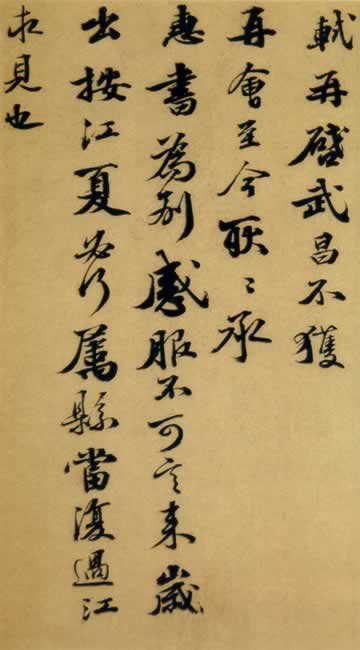 軾再啓武昌不獲
再會至今耿〻承
惠書為別感服不可言来歲
出按江夏必行屬縣當復過江
求見也